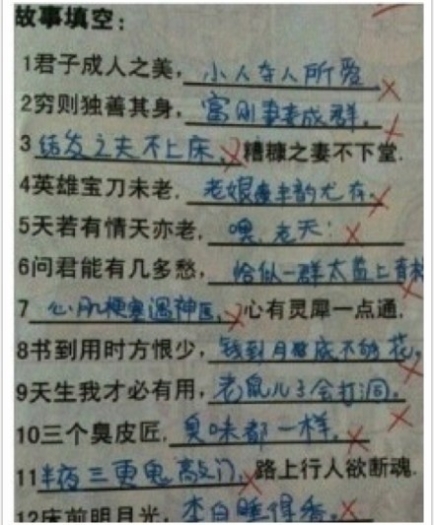 故事填空：
1君子成人之美，小人夺人所爱
2穷则独善其身，富则妻妾成群。
3 结发之夫不上床，糟糠之妻不下堂.
4英雄宝刀未老，老娘丰韵尤存。
5天若有情天亦老，嘿，老天！
6问君能有几多愁，恰似一群太监上青
7 心肌梗塞遇神医，心有灵犀一点通，
8书到用时方恨少，钱到月底不够花，
9天生我才必有用，老鼠儿子会打洞。
10三个臭皮匠，臭味都一样，
11半夜三更鬼敲门，路上行人欲断魂.
12床前明月光，李白睡得香。